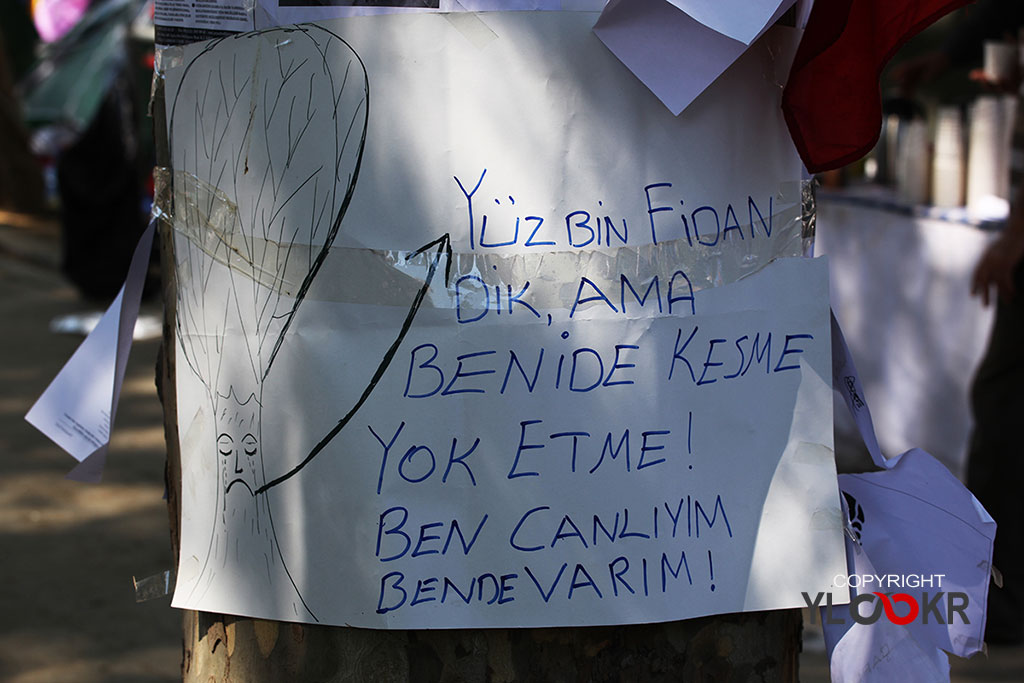 YÜZ BİN FİDAN
DİK, AMA
BENİDE KESME
YOK ETME!
BEN CANLIYIM
BENDE VARIM!
COPYRIGHT
YLOOKR